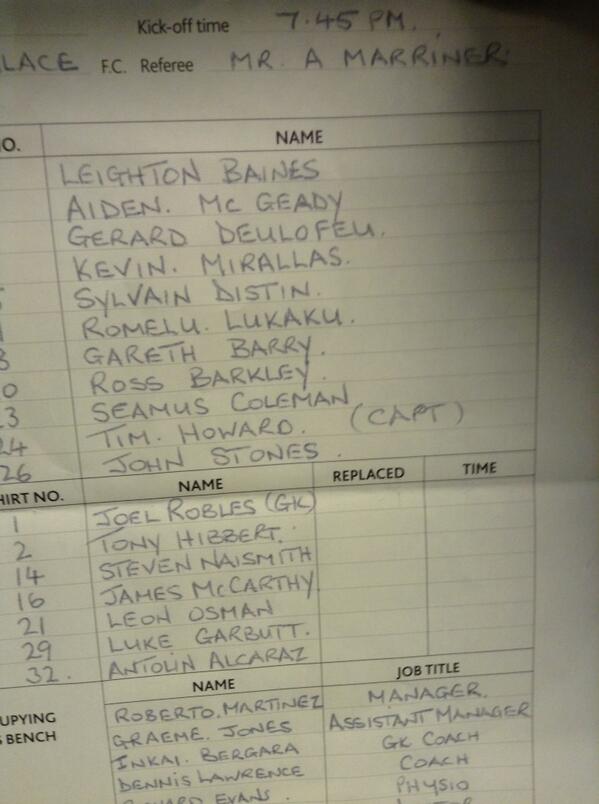 Kick-off time 7.45 PM.
LACE F.C. Referee MR. A MARRINER
O. NAME
LEIGHTON BAINES
AIDEN. MC GEADY
GERARD DEULOFEU.
KEVIN. MIRALLAS.
SYLVAIN DISTIN.
ROMELU. LUKAKU.
8 GARETH BARRY.
0 ROSS BARKLEY.
23 SEAMUS COLEMAN
24 TIM. HOWARD. (CAPT)
26 JOHN STONES.
HIRT NO. NAME REPLACED TIME
1 JOEL ROBLES (GK)
2 TONY HIBBERT.
14 STEVEN NAISMITH
16 JAMES McCARTHY
21 LEON OSMAN
29 LUKE GARBUTT.
32. ANTOLIN ALCARAZ
NAME JOB TITLE
ROBERTO. MARTINEZ MANAGER.
UPYING GRAEME. JONES ASSISTANT MANAGER
BENCH INKAI. BERGARA GK COACH
DENNIS LAWRENCE COACH
EVANS. PHYSIO